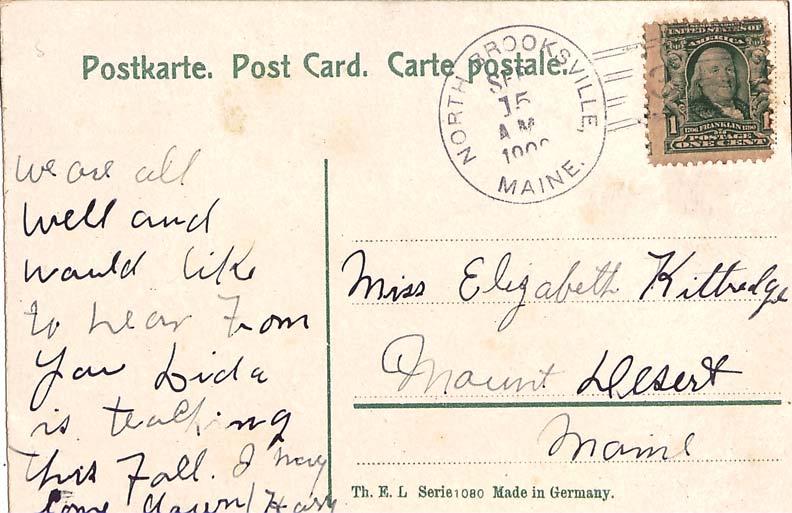 Postkarte. Post Card. Carte postale.
NORTH BROOKSVILLE,
SEP
15
A M
MAINE.
UNITED STATES OF
AMERICA
1 1
1706 FRANKLIN 1790
POSTAGE
ONE CENT
we are all
well and
would like
to hear from
you Lida
is teaching
this Fall. I may
come down
Miss Elizabeth Kittredge
Mount Desert
Maine
Th. E. L Serie 1080 Made in Germany.